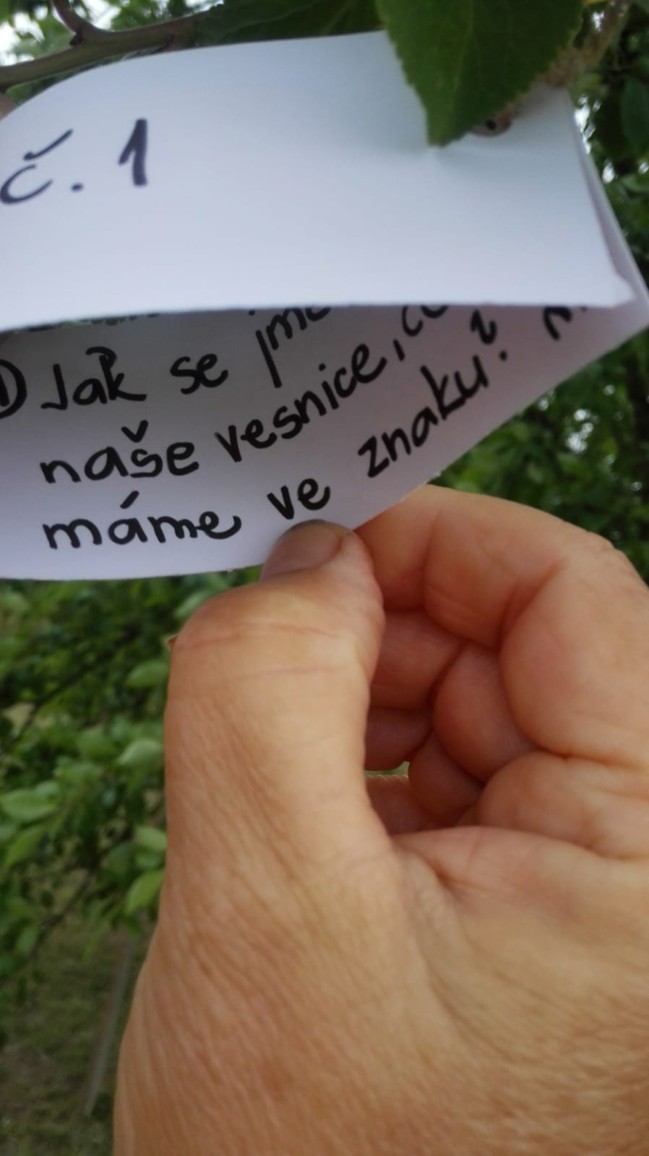 č. 1
① Jak se jme
naše vesnice, co
máme ve znaku?